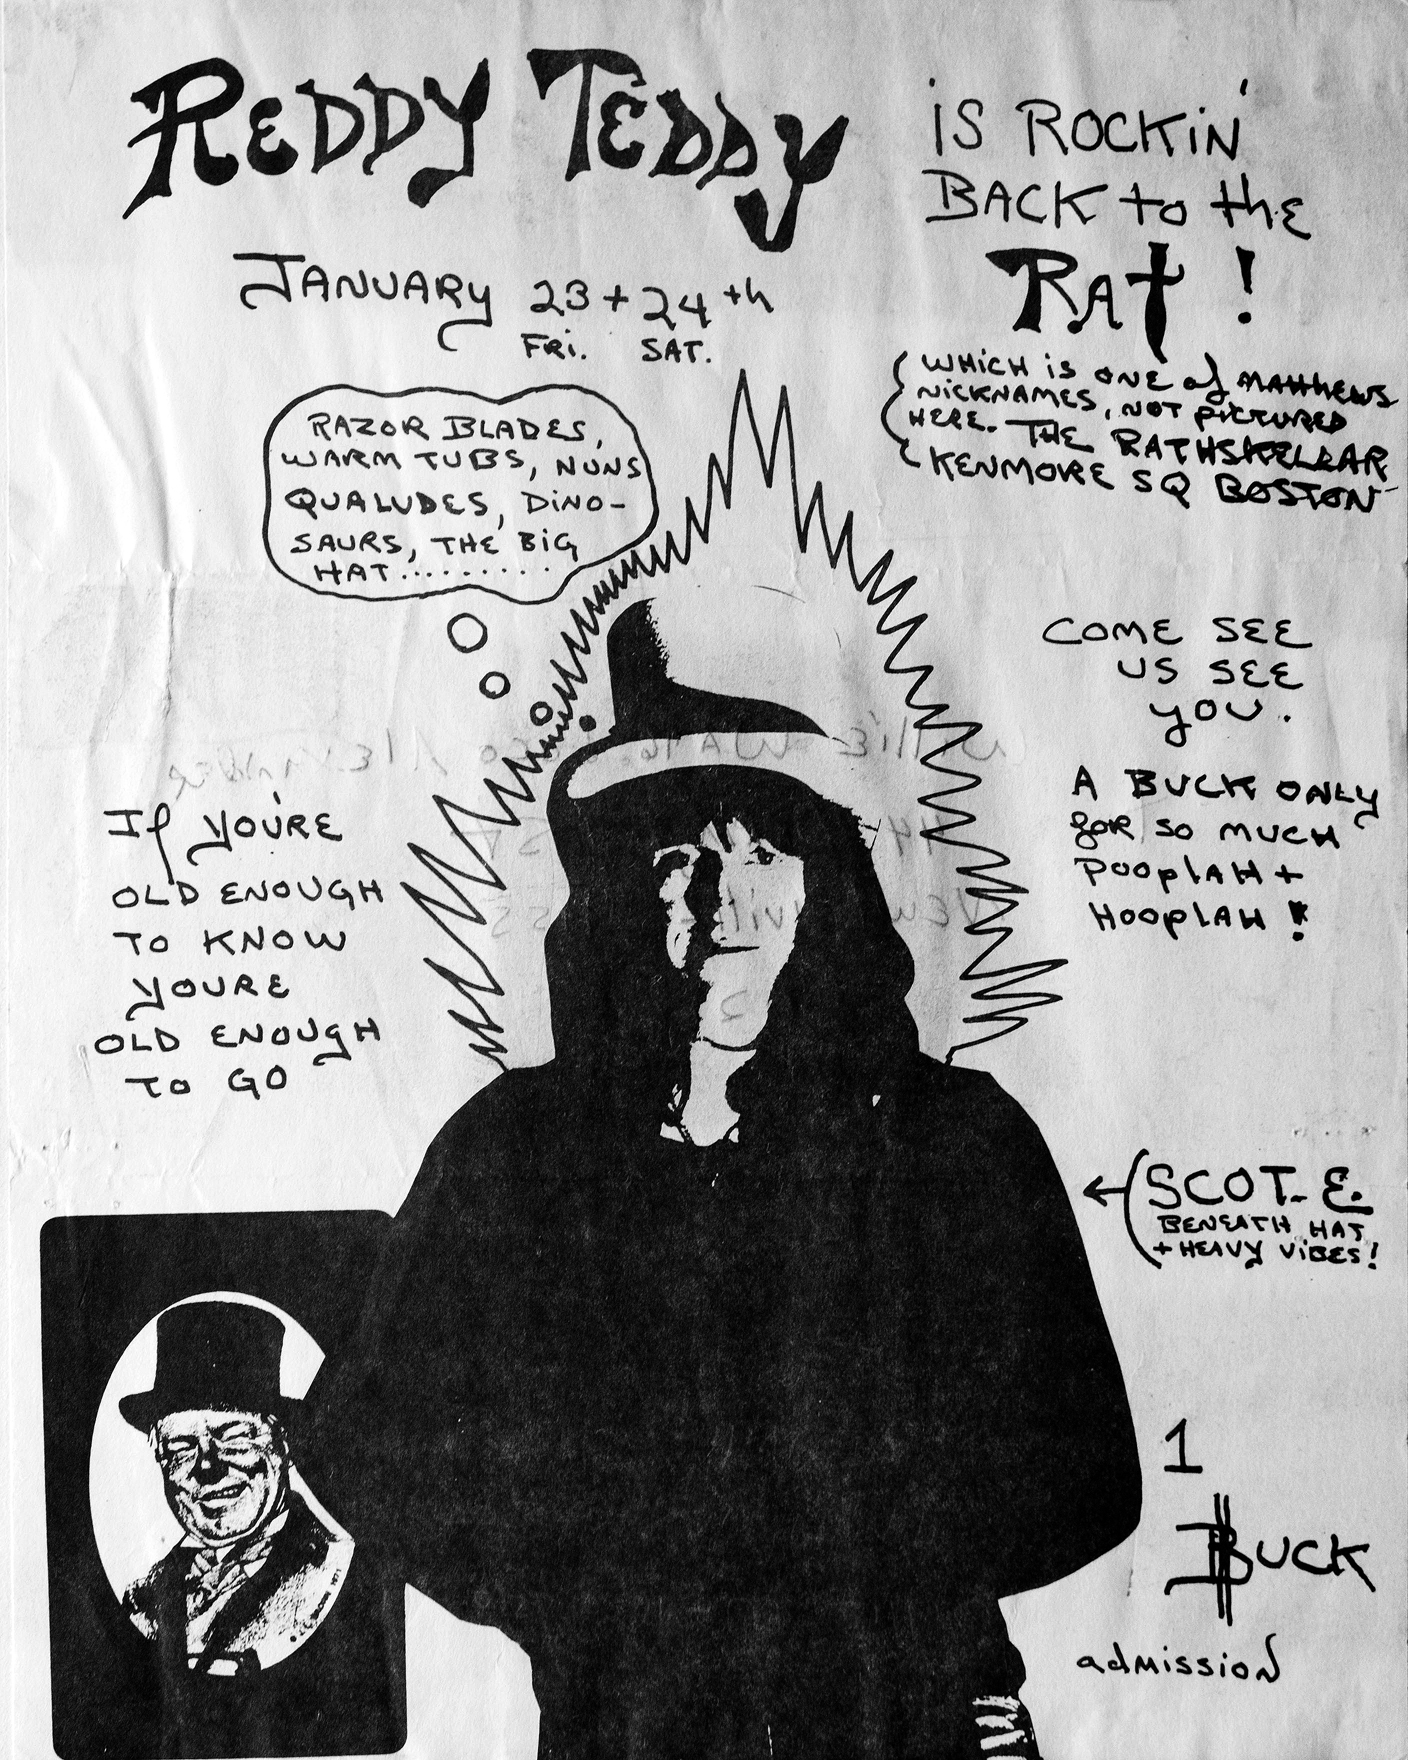 REDDY TEDDY
iS ROCKiN'
BACK to thE
RAt !
JANUARY 23 + 24th
FRi. SAT.
WHiCH iS ONE of MATTHEWS
NiCKNAMES, NOT PiCTURED
HERE. THE RATHSKELLAR
KENMORE SQ BOSTON
RAZOR BLADES,
WARM TUBS, NUNS
QUALUDES, DiNO-
SAURS, THE BiG
HAT.........
COME SEE
US SEE
YOU.
A BUCK ONLY
for SO MUCH
POOPlAH +
HOOPlAH !
If YOU'RE
OLD ENOUGH
TO KNOW
YOURE
OLD ENOUgH
TO GO
SCOT. E.
BENEATH HAT
+ HEAVY ViBES!
1
BUCK
admission